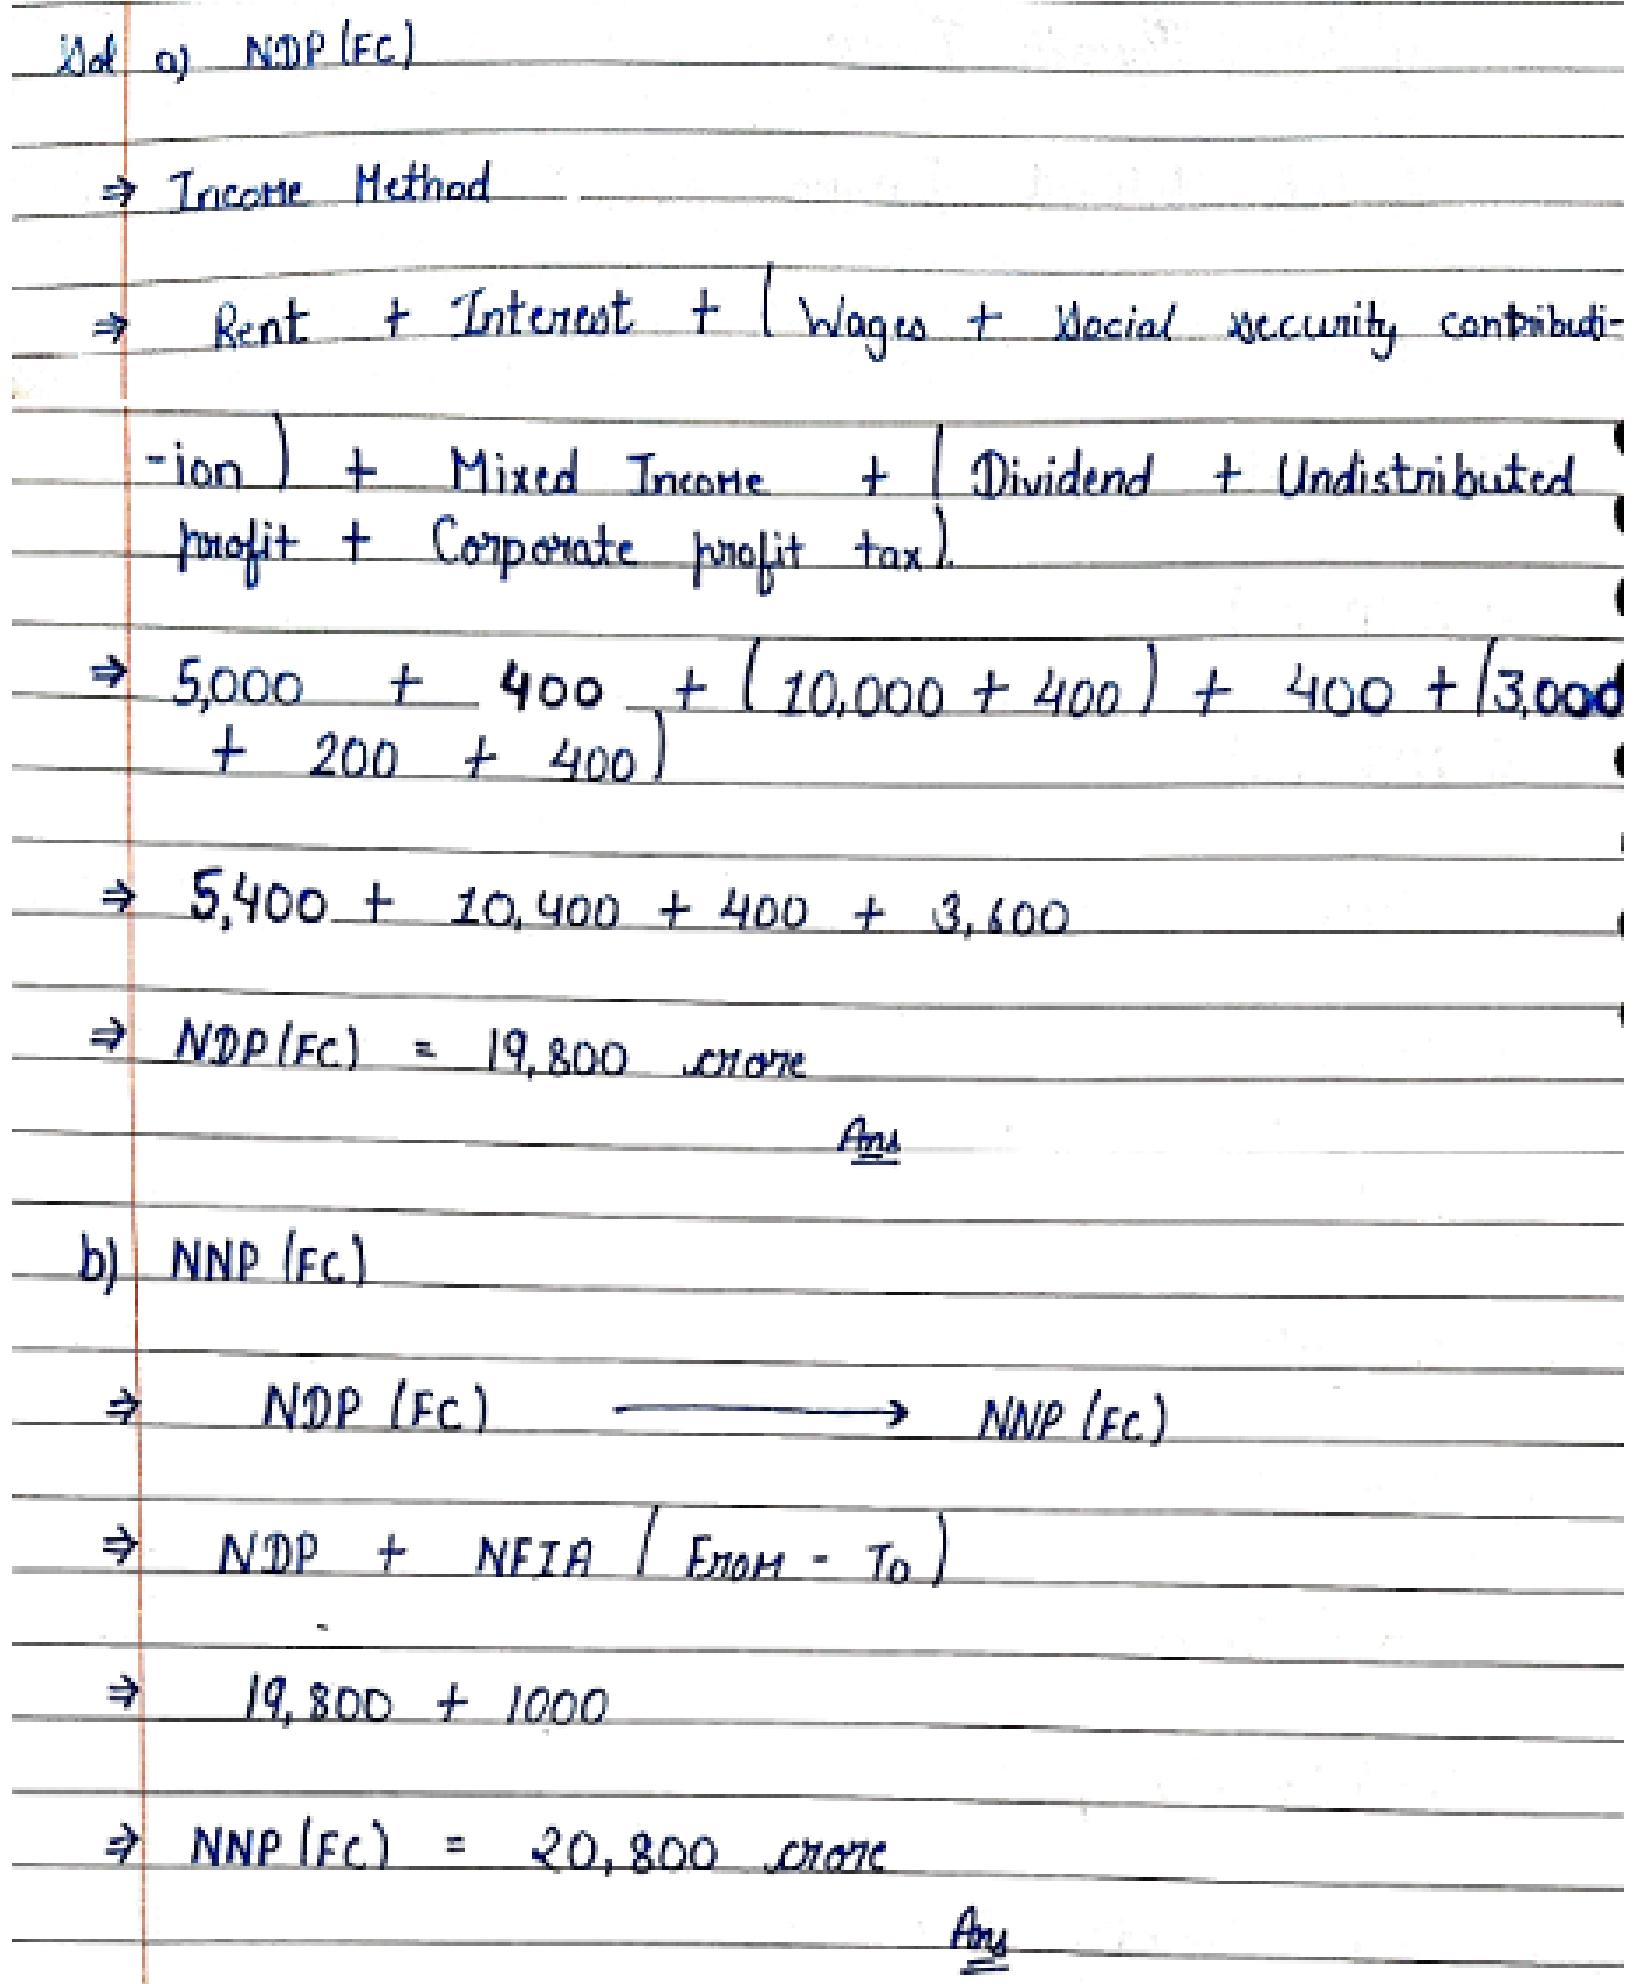 Sol a) NDP (FC)
⇒ Income Method
⇒ Rent + Interest + (Wages + Social security contributi-
-ion) + Mixed Income + (Dividend + Undistributed
profit + Corporate profit tax).
⇒ 5,000 + 400 + (10,000 + 400) + 400 + (3,000
+ 200 + 400)
⇒ 5,400 + 10,400 + 400 + 3,600
⇒ NDP (FC) = 19,800 crore
Ans
b) NNP (FC)
⇒ NDP (FC) ⟶ NNP (FC)
⇒ NDP + NFIA (From - To)
⇒ 19,800 + 1000
⇒ NNP (FC) = 20,800 crore
Ans